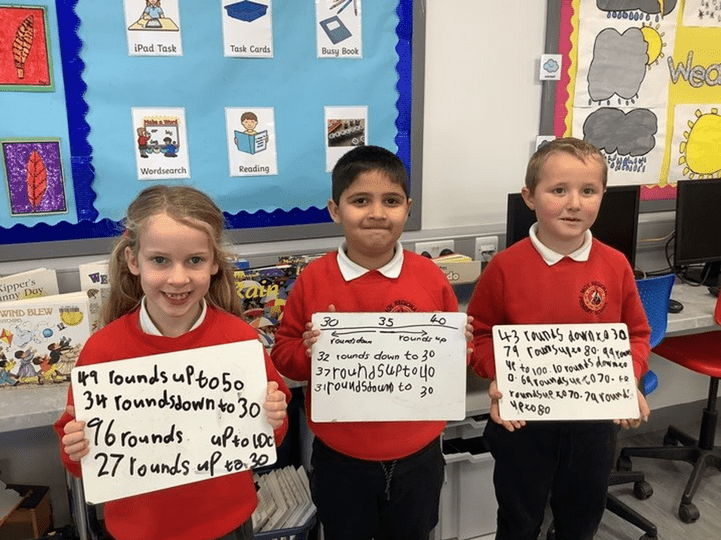 iPad Task
Task Cards
Busy Book
Wordsearch
Reading
Wea
Kipper's
Sunny Day
WIND BLEW
Rain
49 rounds up to 50
34 rounds down to 30
96 rounds up to 100
27 rounds up to 30
30 35 40
rounds down rounds up
32 rounds down to 30
37 rounds up to 40
31 rounds down to 30
43 rounds down to 30
79 rounds up to 80. 99 round
up to 100. 10 rounds down to
0. 69 rounds up to 70. 68
rounds up to 70. 79 rounds
up to 80